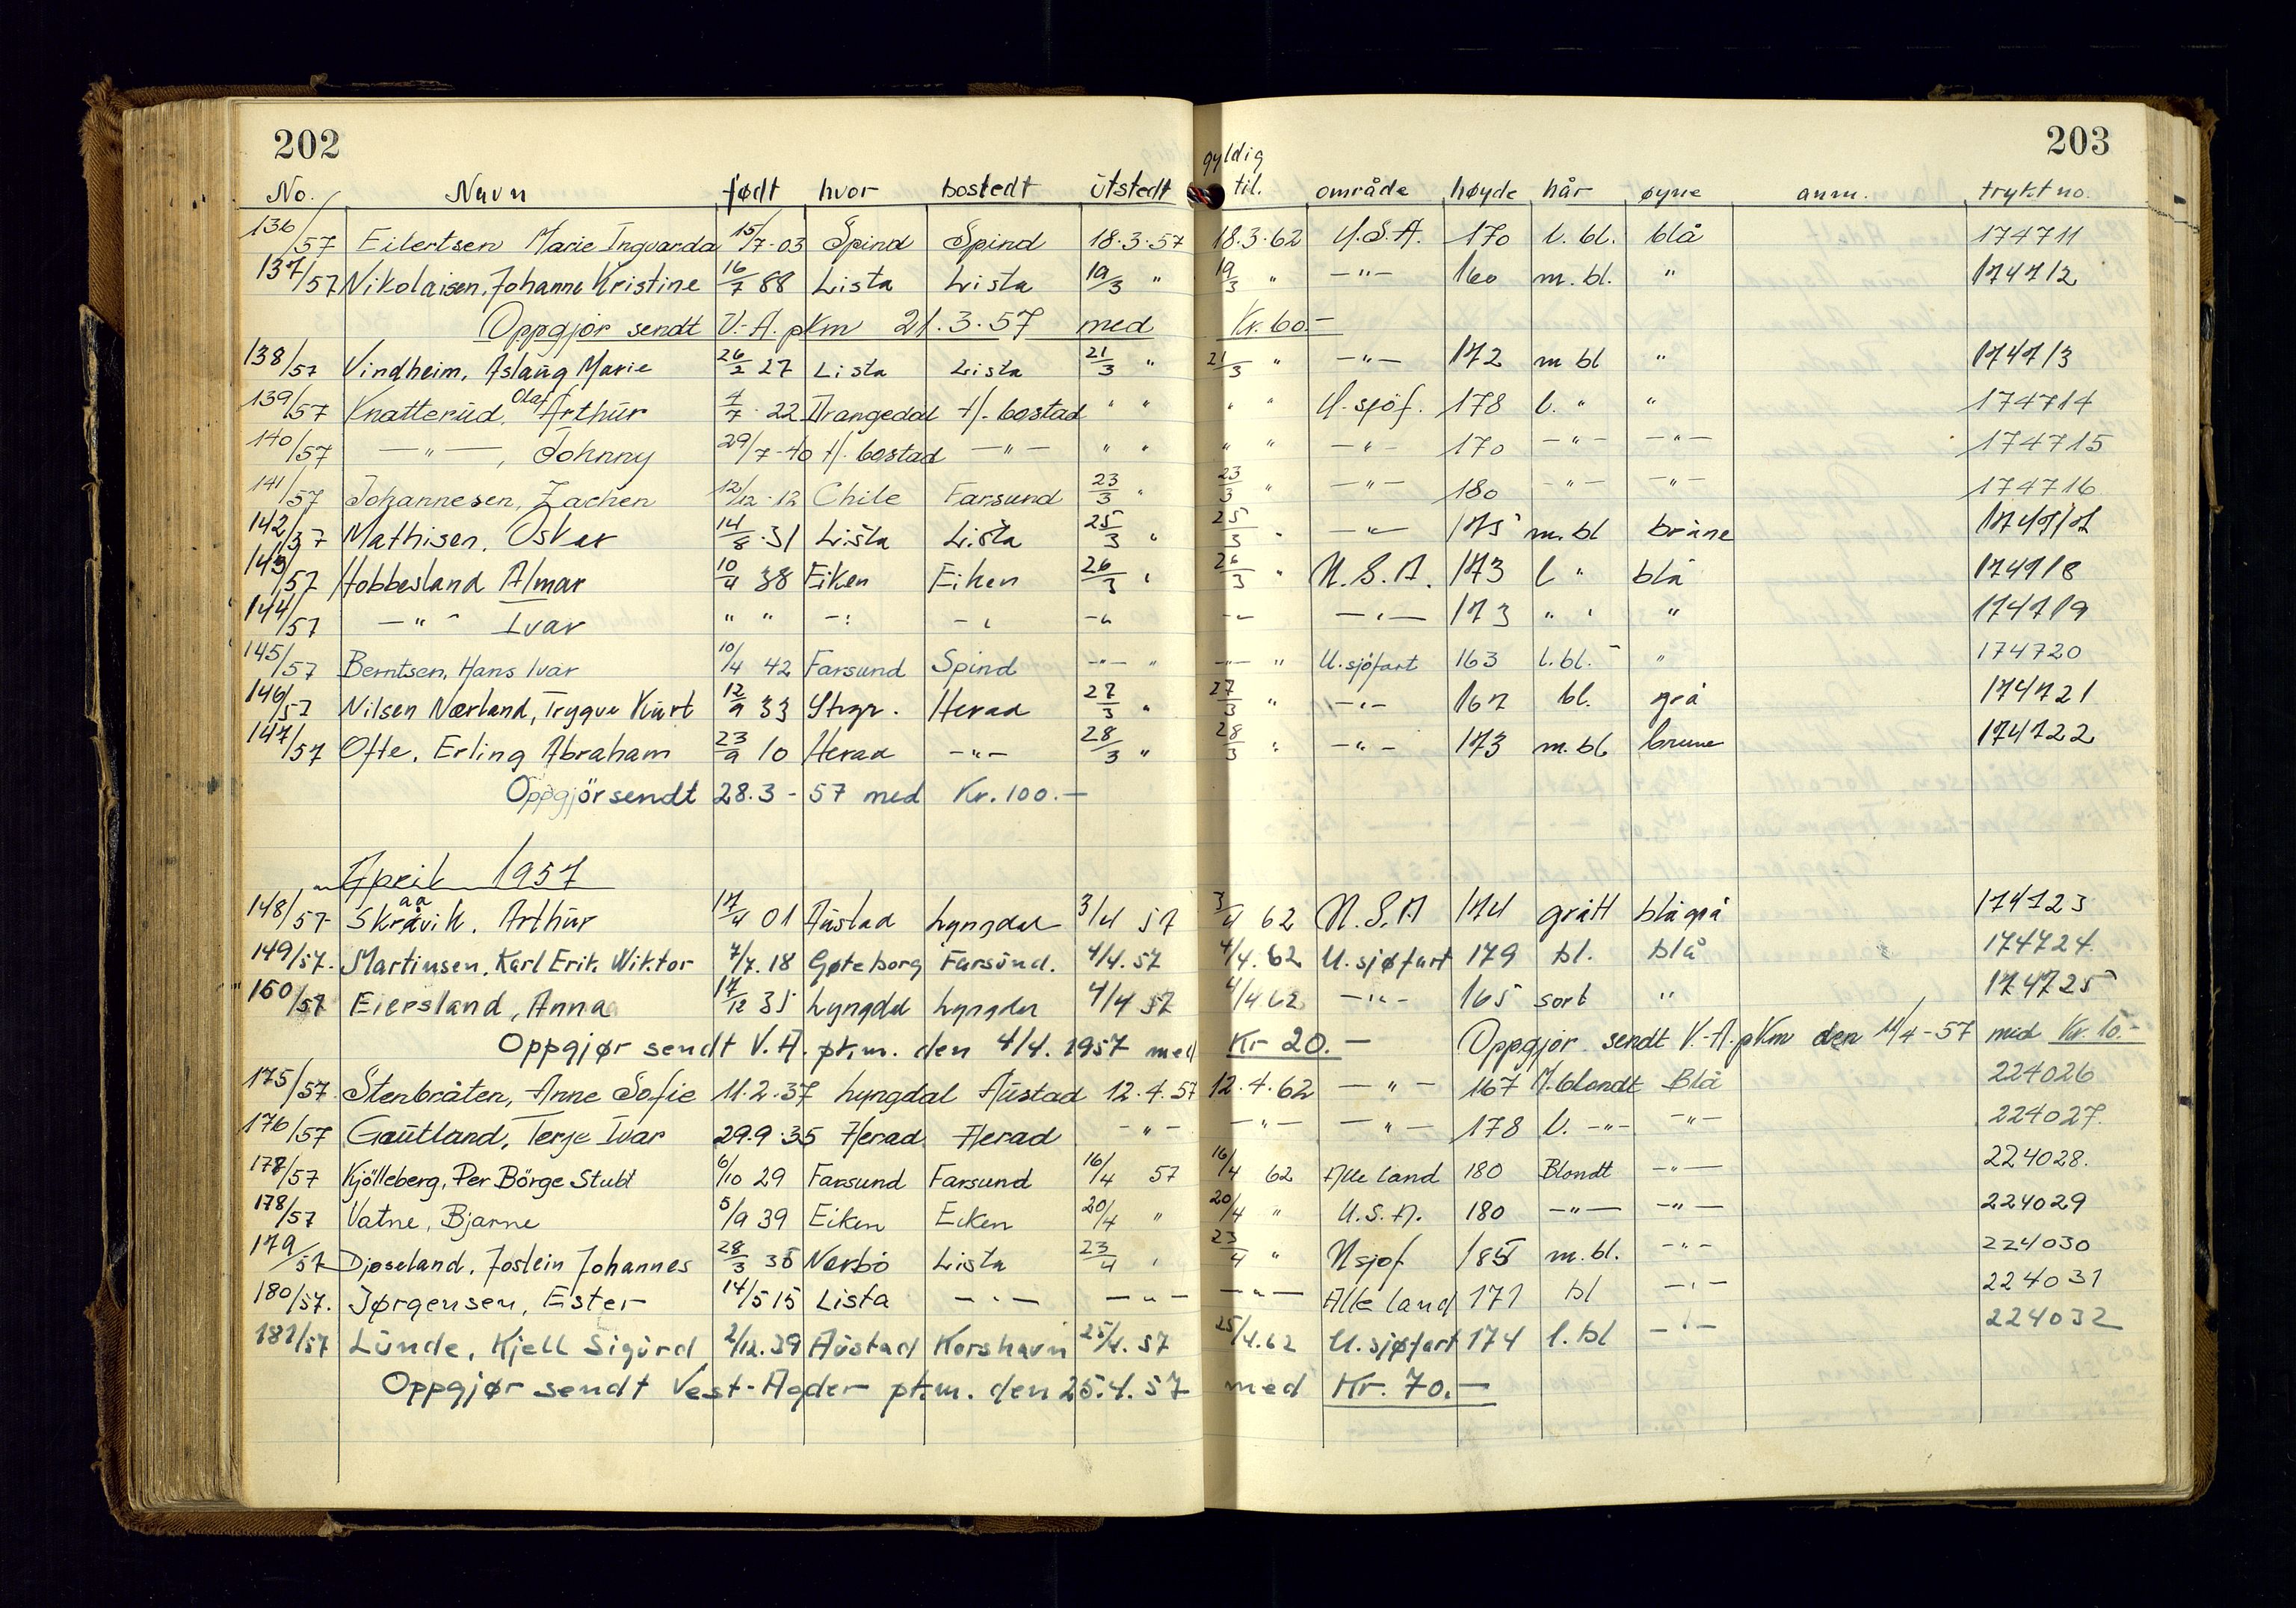 202
203
No. Navn født hvor bostedt utstedt gyldig til. område høyde hår øyne anm. trykt no.
136/57 Eilertsen Marie Ingvarda 15/7-03 Spind Spind 18.3.57 18.3.62 U.S.A. 170 l. bl. blå 174711
137/57 Nikolaisen, Johanne Kristine 16/7 88 Lista Lista 19/3 " 19/3 " -"- 160 m. bl. " 174712
Oppgjør sendt V.-A. pkm 21.3.57 med Kr. 60.-
138/57 Vindheim, Aslaug Marie 26/2 27 Lista Lista 21/3 " 21/3 " -"- 172 m bl " 174713
139/57 Knatterud, Olaf Arthur 4/7 22 Drangedal H. bostad " " " " U. sjöf. 178 l. " " 174714
140/57 -"-, Johnny 29/7-40 H. bostad -"- " " " " -"- 170 -"- -"- 174715
141/57 Johannesen, Zachen 12/12-12 Chile Farsund 23/3 " 23/3 " -"- 180 -"- -"- 174716
142/57 Mathisen, Oskar 14/8.31 Lista Lista 25/3 " 25/3 " -"- 175 m. bl brune 174717
143/57 Hobbesland Almar 10/4 38 Eiken Eiken 26/3 " 26/3 " U.S.A. 173 l " blå 174718
144/57 -"- Ivar " " -"- -"- -"- -"- -"- 173 " " " 174719
145/57 Berntsen, Hans Ivar 10/4 42 Farsund Spind -"- " -"- " U. sjöfart 163 l. bl. " 174720
146/57 Nilsen Nærland, Trygve Kurt 12/9 33 Stvgr. Herad 27/3 " 27/3 " -"- 167 bl. grå 174721
147/57 Ofte, Erling Abraham 23/9 10 Herad -"- 28/3 " 28/3 " -"- 173 m. bl brune 174722
Oppgjör sendt 28.3-57 med Kr. 100.-
April 1957
148/57 Skråvik, aa Arthur 17/4 01 Austad Lyngdal 3/4 57 3/4 62 U.S.A 174 grått blågrå 174723
149/57. Martinsen, Karl Erik Wiktor 7/7. 18 Gøteborg Farsund. 4/4. 57 4/4. 62 U. sjøfart 179 bl. blå 174724.
150/57 Eiersland, Anna 17/12 35 Lyngdal Lyngdal 4/4 57 4/4 62 -"- 165 sort " 174725
Oppgjør sendt V.A. pkm. den 4/4. 1957 med Kr 20.- Oppgjør sendt V.-A. pkm den 11/4-57 med Kr. 10.-
175/57. Stenbråten, Anne Sofie 11.2.37 Lyngdal Austad 12.4.57 12.4.62 -"- 167 M. blondt Blå 224026
176/57 Gautland, Terje Ivar 29.9.35 Herad Herad -"- -"- -"- 178 l. -"- -"- 224027.
178/57 Kjölleberg, Per Börge Stubt 6/10 29 Farsund Farsund 16/4 57 16/4 62 Alle land 180 Blondt -"- 224028.
178/57 Vatne, Bjarne 5/9 39 Eiken Eiken 20/4 " 20/4 " U.S.A. 180 -"- -"- 224029
179/57 Djøseland, Jostein Johannes 28/3 35 Nærbö Lista 23/4 " 23/4 " U sjøf 185 m. bl. -"- 224030
180/57. Jørgensen, Ester 14/5 15 Lista -"- -"- -"- Alle land 171 bl -"- 224031
181/57 Lunde, Kjell Sigurd 2/12. 39 Austad Korshavn 25/4. 57 25/4.62 U. sjøfart 174 l. bl -"- 224032
Oppgjør sendt Vest-Agder pkm. den 25.4.57 med Kr. 70.-